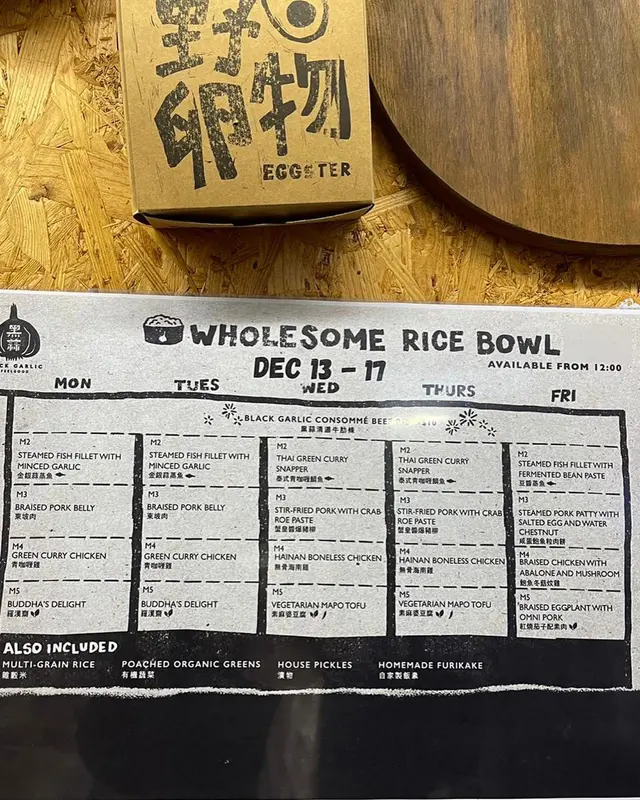 野
卵物
EGGSTER
黑
蒜
CK GARLIC
FEELGOOD
WHOLESOME RICE BOWL
DEC 13 - 17
AVAILABLE FROM 12:00
MON TUES WED THURS FRI
BLACK GARLIC CONSOMMÉ
黑蒜清湯牛肋條
M2
STEAMED FISH FILLET WITH
MINCED GARLIC
金銀蒜蒸魚
M2
STEAMED FISH FILLET WITH
MINCED GARLIC
金銀蒜蒸魚
M2
THAI GREEN CURRY
SNAPPER
泰式青咖喱鯛魚
M2
THAI GREEN CURRY
SNAPPER
泰式青咖喱鯛魚
M2
STEAMED FISH FILLET WITH
FERMENTED BEAN PASTE
豆醬蒸魚
M3
BRAISED PORK BELLY
東坡肉
M3
BRAISED PORK BELLY
東坡肉
M3
STIR-FRIED PORK WITH CRAB
ROE PASTE
蟹皇醬爆豬柳
M3
STIR-FRIED PORK WITH CRAB
ROE PASTE
蟹皇醬爆豬柳
M3
STEAMED PORK PATTY WITH
SALTED EGG AND WATER
CHESTNUT
M4
GREEN CURRY CHICKEN
青咖喱雞
M4
GREEN CURRY CHICKEN
青咖喱雞
M4
HAINAN BONELESS CHICKEN
無骨海南雞
M4
HAINAN BONELESS CHICKEN
無骨海南雞
M4
BRAISED CHICKEN WITH
ABALONE AND MUSHROOM
鮑魚冬菇炆雞
M5
BUDDHA'S DELIGHT
羅漢齋
M5
BUDDHA'S DELIGHT
羅漢齋
M5
VEGETARIAN MAPO TOFU
素麻婆豆腐
M5
VEGETARIAN MAPO TOFU
素麻婆豆腐
M5
BRAISED EGGPLANT WITH
OMNI PORK
紅燒茄子配素肉
ALSO INCLUDED
MULTI-GRAIN RICE POACHED ORGANIC GREENS HOUSE PICKLES HOMEMADE FURIKAKE
雜穀米 有機蔬菜 漬物 自家製飯素